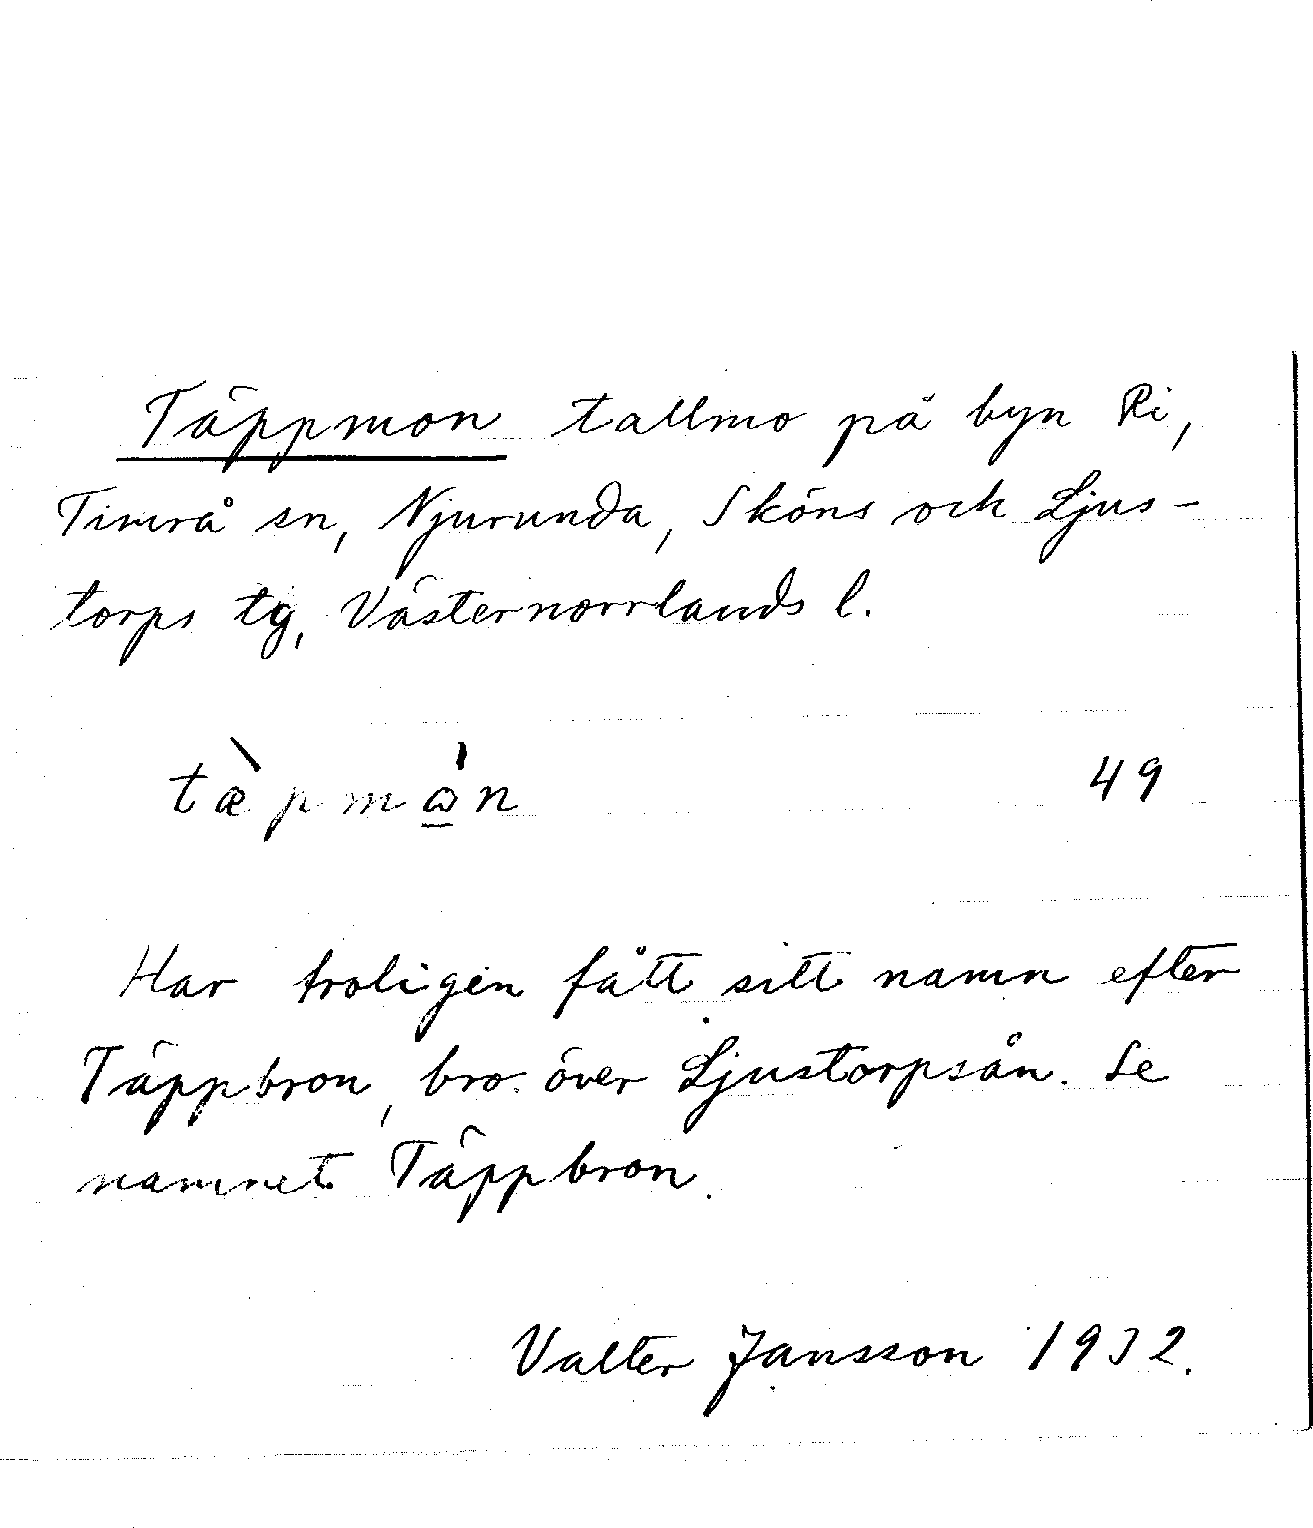 Täppmon tallmo på byn Ri,
Timrå sn, Njurunda, Sköns och Ljus-
torps tg, Västernorrlands l.
tæ̀pmɷ̲́n 49
Har troligen fått sitt namn efter
Täppbron, bro över Ljustorpsån. Se
namnet Täppbron.
Valter Jansson 1932.